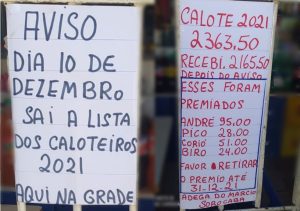 AVISO
DIA 10 DE
DEZEMBRO
SAI A LISTA
DOS CALOTEIROS
2021
AQUI NA GRADE
CALOTE 2021
2363.50
RECEBI. 2165.50
DEPOIS DO AVISO
ESSES FORAM
PREMIADOS
ANDRE 95.00
PICO 28.00
CORIO 51.00
BIRO 24.00
FAVOR RETIRAR
O PREMIO ATÉ
31-12-21
ADEGA DO MARCIO
SOROCABA